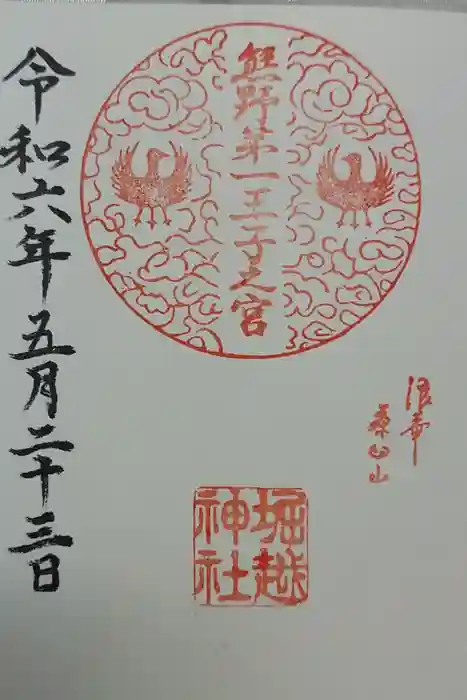 熊野第一王子之宮
浪華
桑凸山
堀越
神社
令和六年五月二十三日